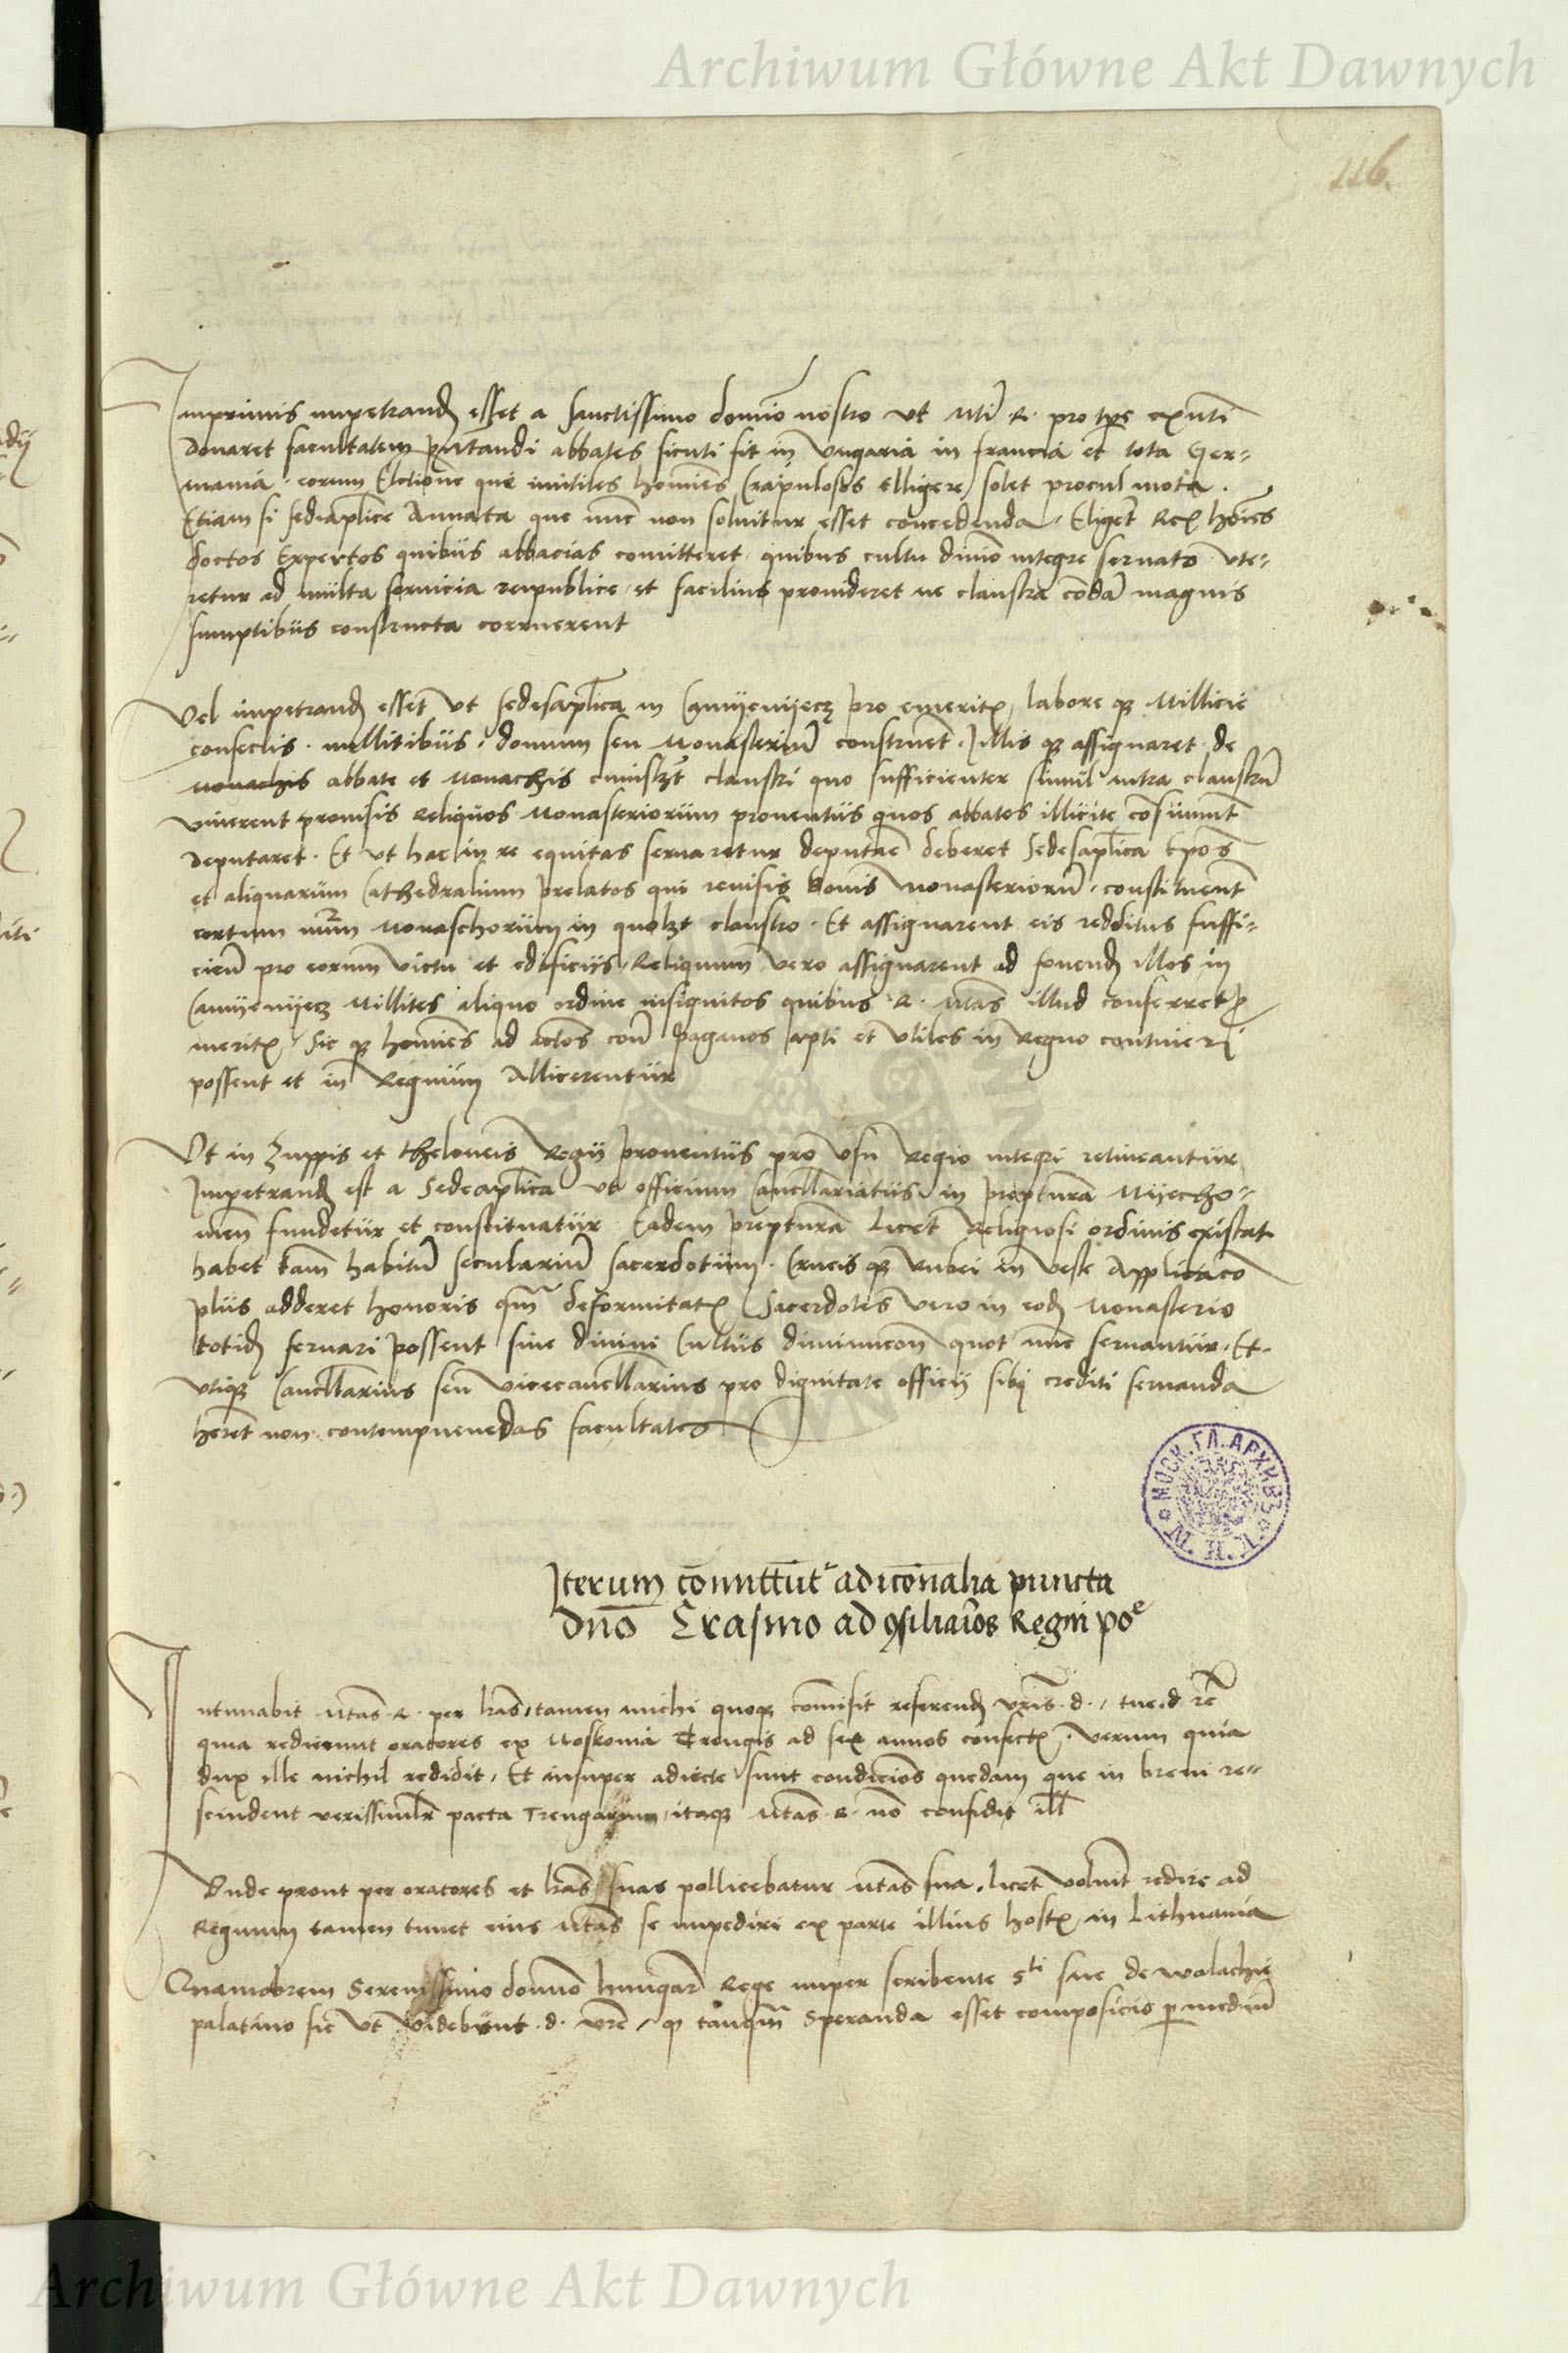 Archiwum Główne Akt Dawnych
116.
Inprimis impetrand esset a sanctissimo domino nostro ut Mti R. pro tpe exnti
donaret facultatem pntandi abbates sicuti fit in Vngaria in francia et tota Ger-
mania. eorum Elctione que inutiles homines Crapulosos elligere solet procul mota.
Etiam si sediaplice Annata que nunc non soluitur esset concedenda, Eliget Rex hoies
doctos Expertos quibus abbacias comitteret quibus cultu diuino integre seruato vte-
retur ad multa seruicia reipublice et facilius prouideret ne claustra condam magnis
sumptibus constructa corruerent
Vel impetrand esset ut sedesaplica in Camyenyecz pro emeritis labore qz Millicie
confectis. millitibus. domum seu Monasterium construet. Illis qz assignaret de
monachis abbate et Monachis claustri quo sufficienter simul intra claustrum
viuerent prouisis Reliquos Monasteriorum prouentus quos abbates illicite consumunt
deputaret. Et ut hac in re equitas seruaretur deputare deberet Sedesaplica Epos
et aliquarum Cathedralium prelatos qui reuisis bonis monasteriorum. constituent
certum numerum Monaschorum in quolzt claustro. Et assignarent eis redditus suffi-
cien pro eorum victu et edificiis, Reliquum vero assignarent ad fouend illos in
Camyenyecz Millites aliquo ordine insignitos quibus R. Mtas illud conferret p
meritis, Sic qz homines ad actos con paganos apti et vtiles in Regno contineri
possent et in Regnum Allicerentur
Vt in Zuppis et theloneis Regii prouentus pro vsu Regio integri retineantur
Impetrand est a Sedeaplica ut officium Cancllariatus in preptura Myecho-
uien fundetur et constituatur Eadem preptura licet Religiosi ordinis existat
habet tam habitum secularium sacerdotum. Crucis qz Rubei in veste Applicaco
plus adderet honoris qm deformitatis Sacerdotes vero in eod Monasterio
totid seruari possent sine diuini Cultus diminucon quot nunc seruantur. Et
vtiqz Cancllarius seu vicecancllarius pro dignitate officii sibi crediti seruanda
heret non contempnenedas facultates
МОСК. ГЛ. АРХИВЪ
М. И. Д.
Iterum comittut adiconalia puncta
Dno Erasmo ad 9siliaros Regni poe
Intimabit Mtas R. per lras, tamen michi quoqz comisit referend vris d. tue d. re
quia redierunt oratores ex Moskouia Treugis ad sex annos confectis. verum quia
dux ille nichil redidit. Et insuper adiecte sunt condicions quedam que in breui re-
scindent verissimilr pacta Treugarum, itaqz Mtas R. no confidit ill
Vnde prout per oratores et lras suas pollicebatur Mtas sua. licet voluit redire ad
Regnum tamen timet eius Mtas se impediri ex parte illius hostis in Lithuania
Quamobrem Serenissimo domino hungar Rege nuper scribente Sti sue de walachie
palatino sic ut videbunt d. vre, qz tanqm Speranda esset composicis p mediu
Archiwum Główne Akt Dawnych